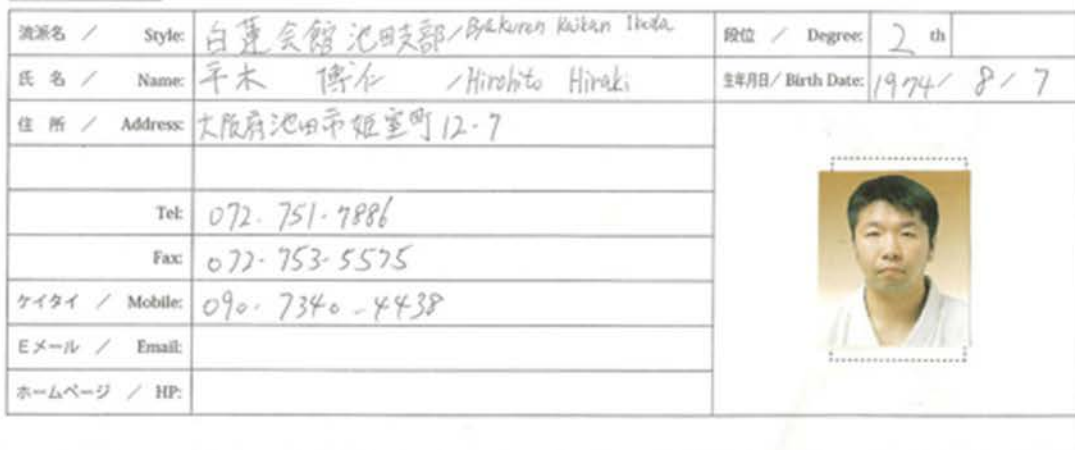 流派名 / Style: 白蓮会館 池田支部/Byakuren Kaikan Ikeda
段位 / Degree: 2 th
氏 名 / Name: 平木 博仁 /Hirohito Hiraki
生年月日/ Birth Date: 1974/ 8/ 7
住 所 / Address: 大阪府池田市姫室町12-7
Tel: 072-751-7886
Fax: 072-753-5575
ケイタイ / Mobile: 090-7340-4438
Eメール / Email:
ホームページ / HP: